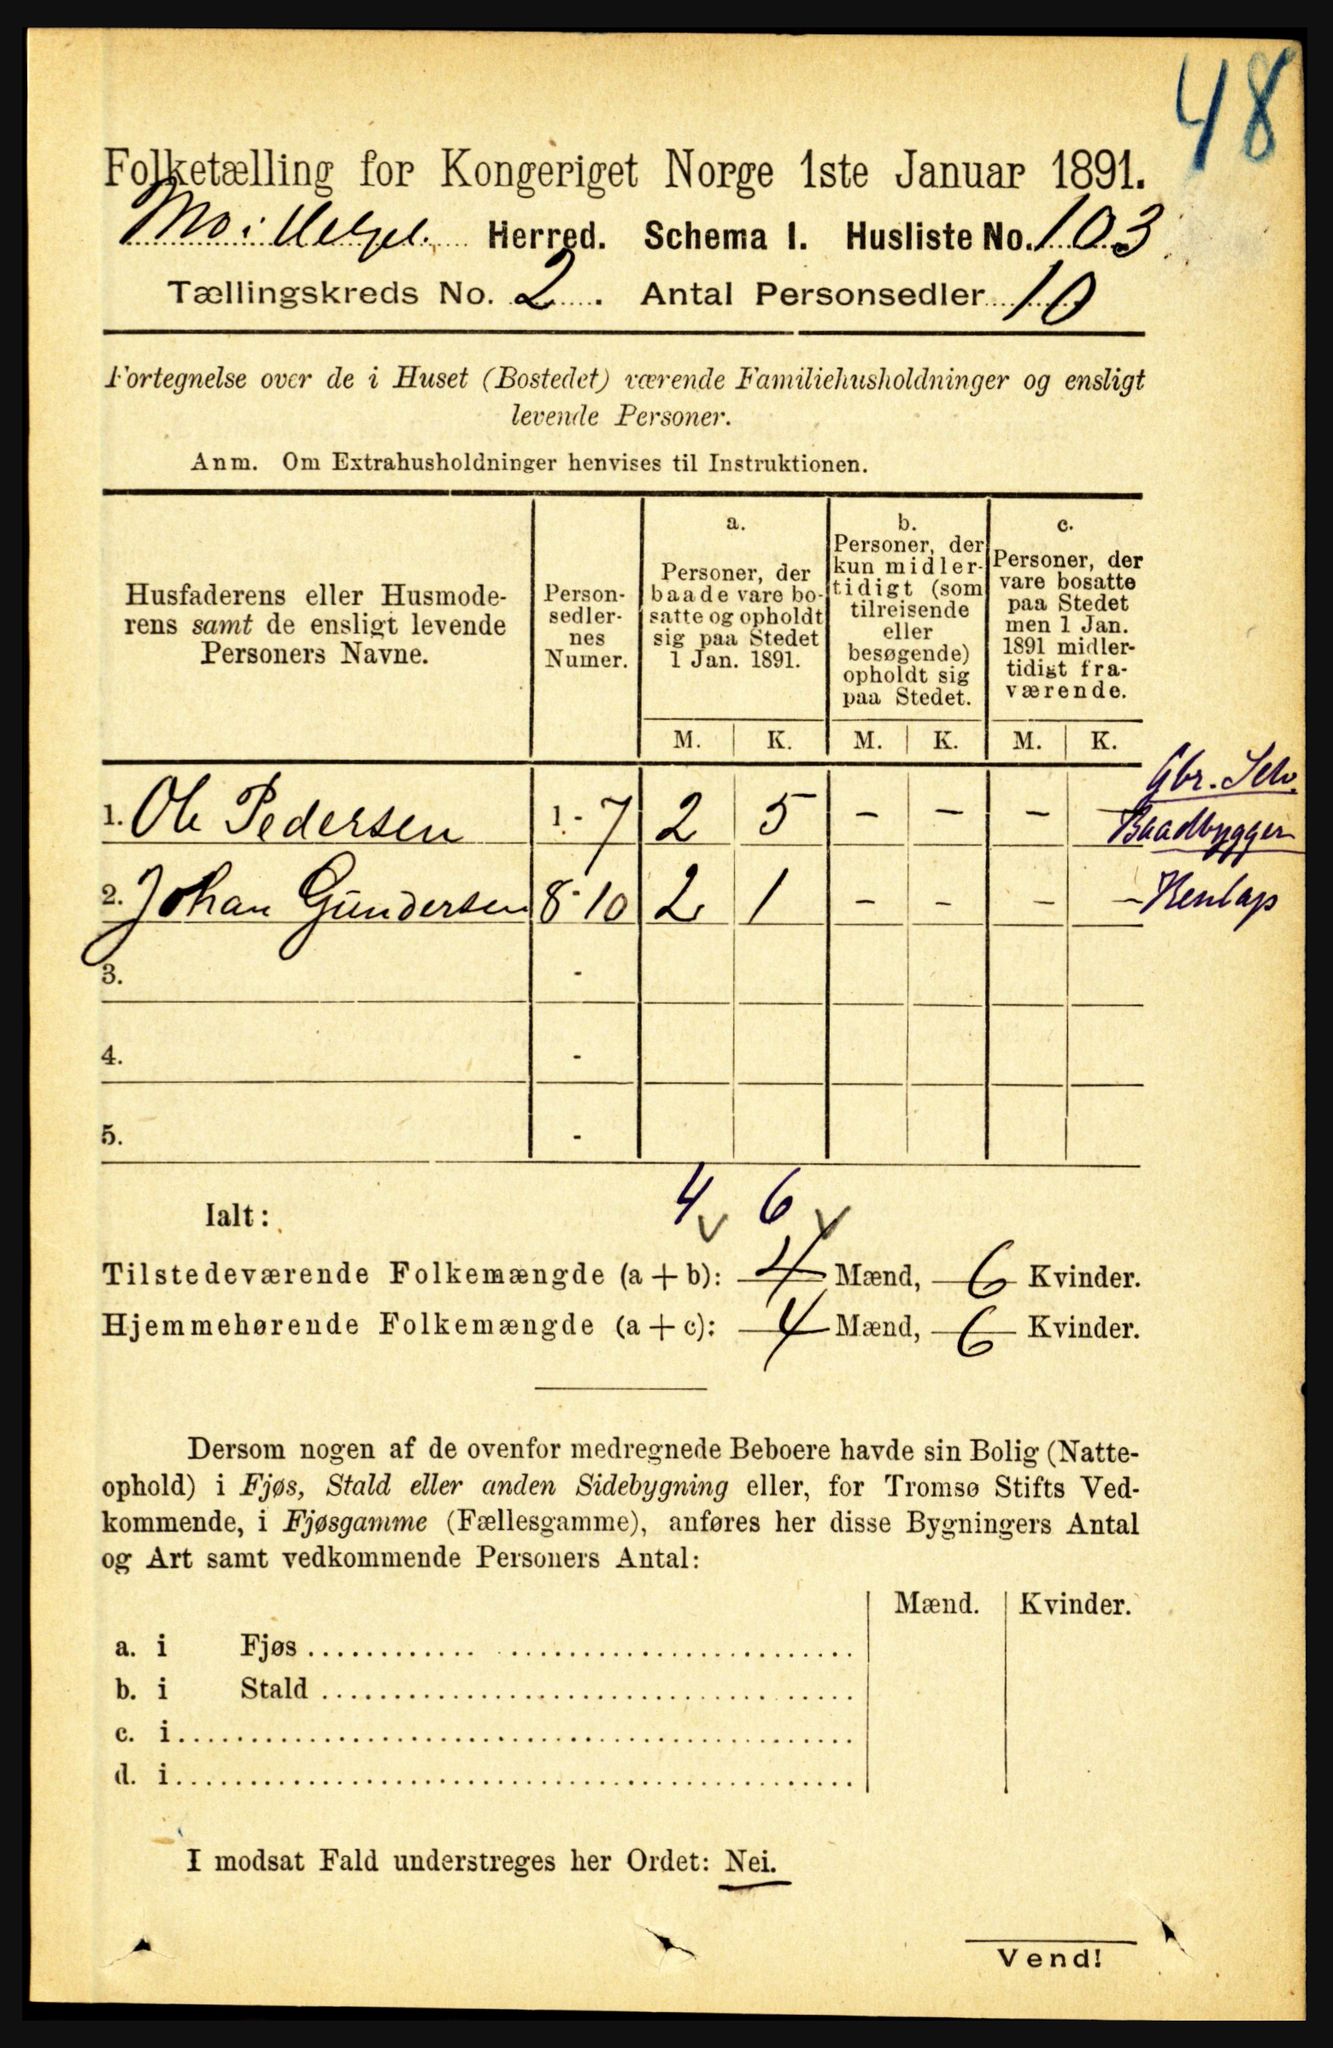 48
Folketælling for Kongeriget Norge 1ste Januar 1891.
Mo i Helgel. Herred. Schema I. Husliste No. 103
Tællingskreds No. 2. Antal Personsedler 10
Fortegnelse over de i Huset (Bostedet) værende Familiehusholdninger og ensligt
levende Personer.
Anm. Om Extrahusholdninger henvises til Instruktionen.
Husfaderens eller Husmode-
rens samt de ensligt levende
Personers Navne.
Person-
sedler-
nes
Numer.
a.
Personer, der
baade vare bo-
satte og opholdt
sig paa Stedet
1 Jan. 1891.
b.
Personer, der
kun midler-
tidigt (som
tilreisende
eller
besøgende)
opholdt sig
paa Stedet.
c.
Personer, der
vare bosatte
paa Stedet
men 1 Jan.
1891 midler-
tidigt fra-
værende.
M. K. M. K. M. K.
Gbr. Selv.
1. Ole Pedersen 1 - 7 2 5 - - - - Baadbygger
2. Johan Gundersen 8 - 10 2 1 - - - -
3. -
4. -
5. -
Ialt: 4 6
Tilstedeværende Folkemængde (a + b): 4 Mænd, 6 Kvinder.
Hjemmehørende Folkemængde (a + c): 4 Mænd, 6 Kvinder.
Dersom nogen af de ovenfor medregnede Beboere havde sin Bolig (Natte-
ophold) i Fjøs, Stald eller anden Sidebygning eller, for Tromsø Stifts Ved-
kommende, i Fjøsgamme (Fællesgamme), anføres her disse Bygningers Antal
og Art samt vedkommende Personers Antal:
Mænd. Kvinder.
a. i Fjøs
b. i Stald
c. i
d. i
I modsat Fald understreges her Ordet: Nei.
Vend!